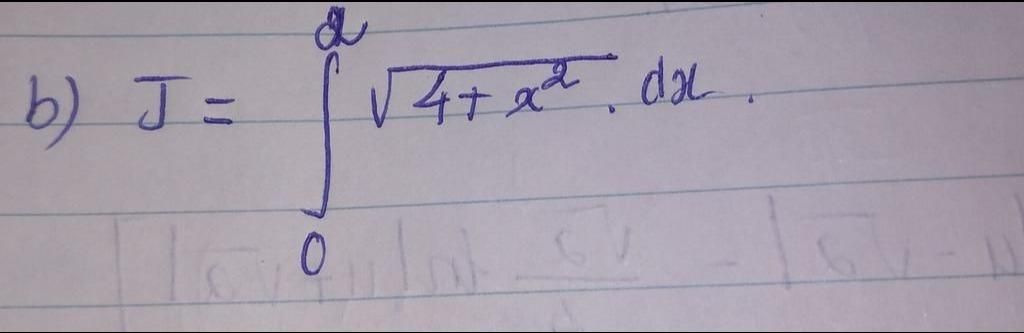 b) J = ∫₀² √(4+x²) . dx .